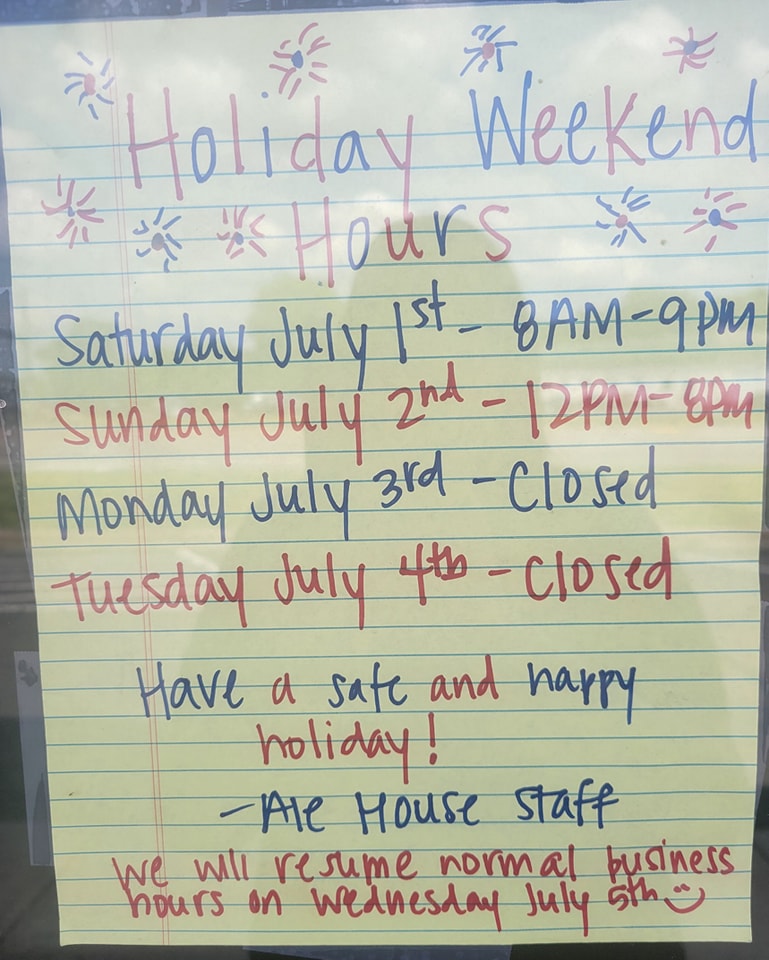 Holiday Weekend
Hours
Saturday July 1st - 8AM-9PM
Sunday July 2nd - 12PM-8PM
Monday July 3rd - Closed
Tuesday July 4th - Closed
Have a safe and happy
holiday!
-Ale House Staff
We will resume normal business
hours on Wednesday July 5th